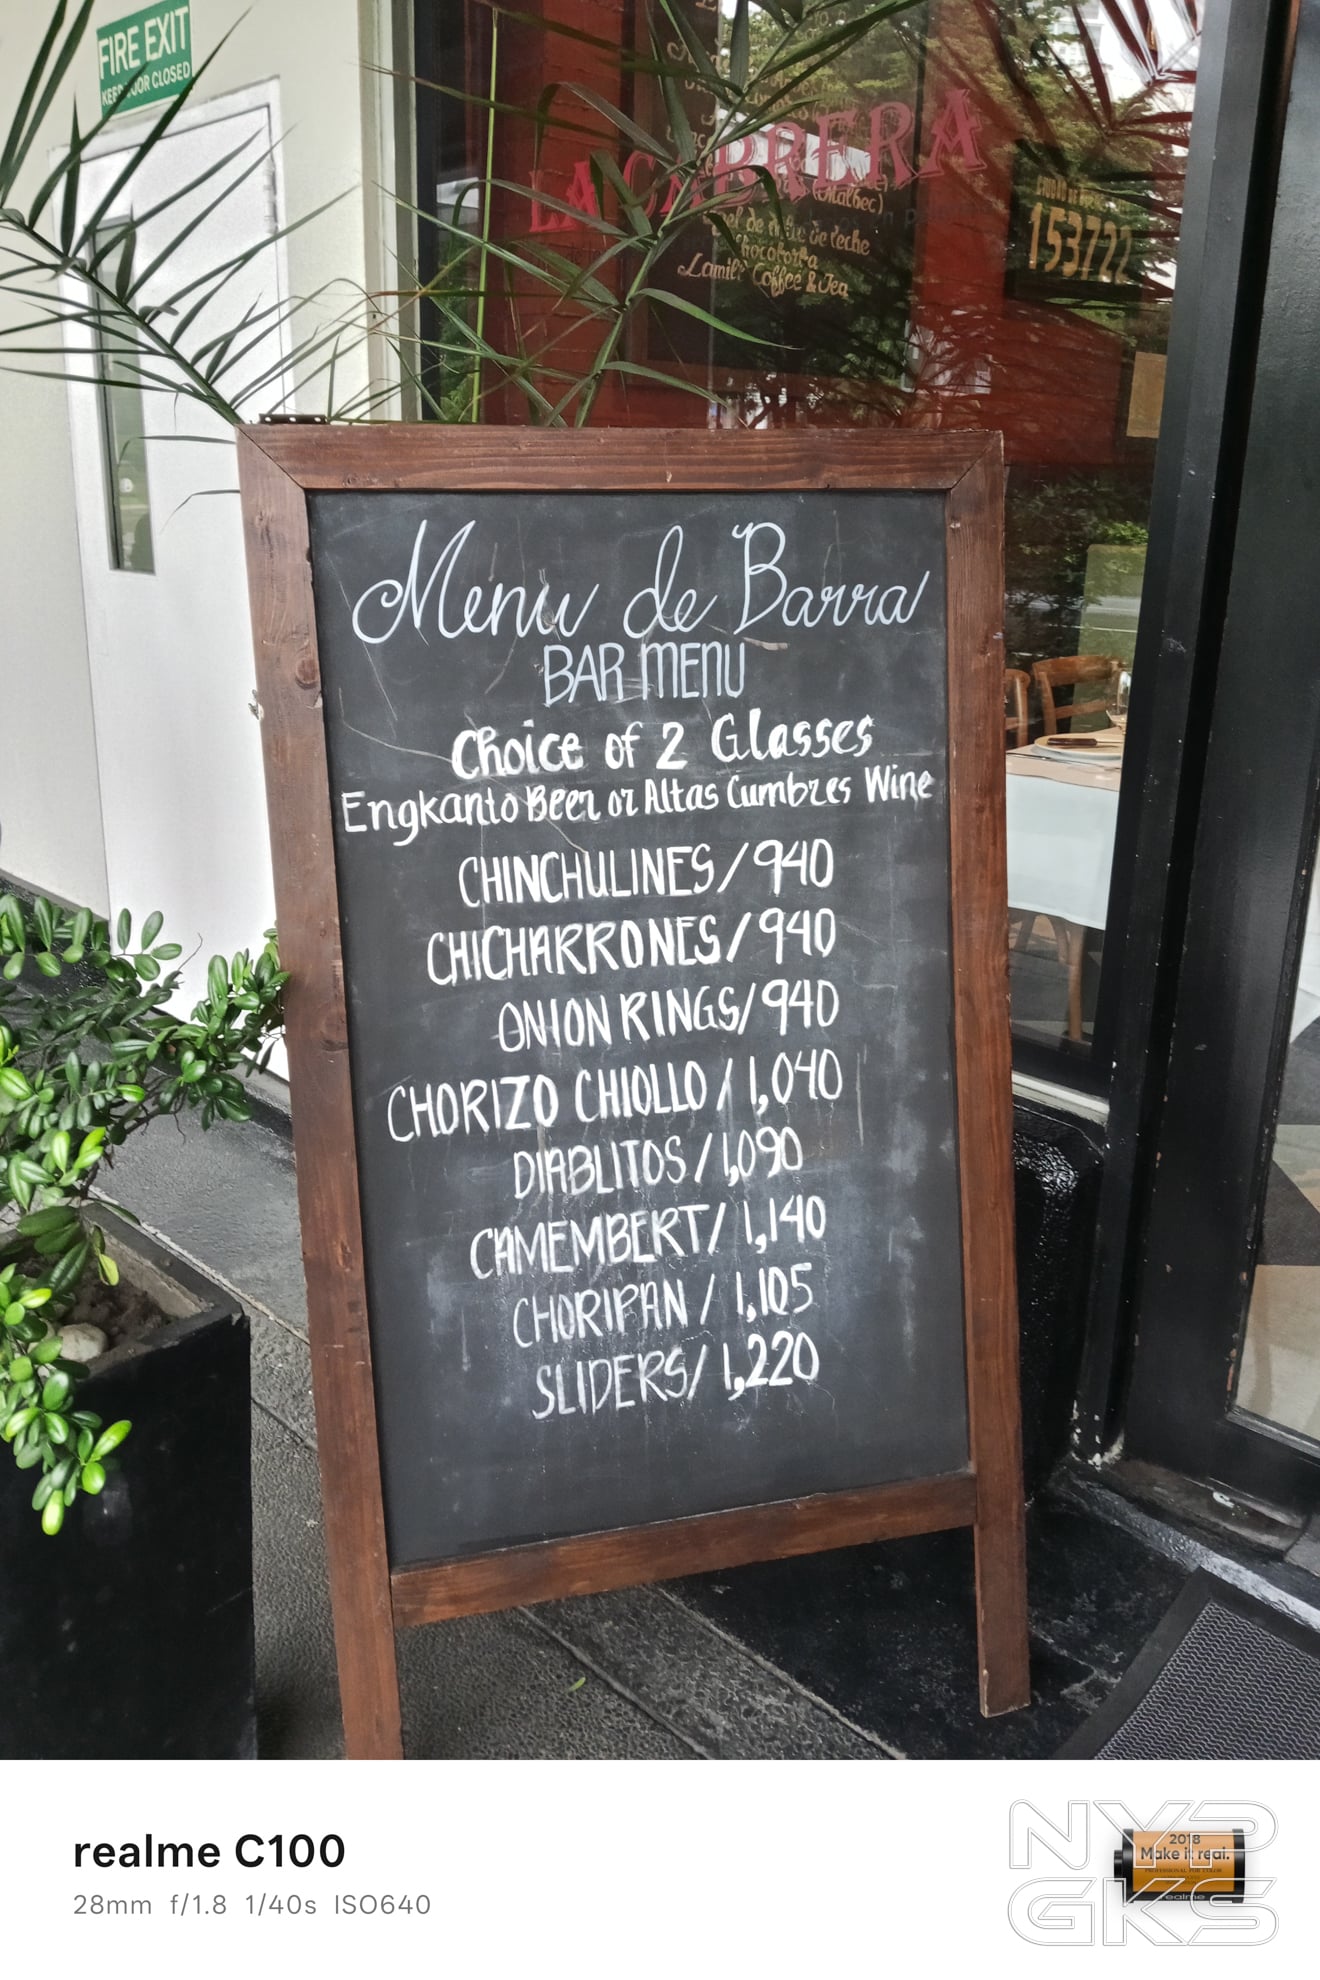 FIRE EXIT
KEEP DOOR CLOSED
LA CABRERA
(Malbec)
de leche
Chocotorta
Lamill Coffee & Tea
153722
Menu de Barra
BAR MENU
Choice of 2 Glasses
Engkanto Beer or Altas Cumbres Wine
CHINCHULINES/940
CHICHARRONES/940
ONION RINGS/940
CHORIZO CHIOLLO/1,040
DIABLITOS/1,090
CAMEMBERT/1,140
CHORIPAN/1,105
SLIDERS/1,220
realme C100
28mm f/1.8 1/40s ISO640
NYP
GKS
2018
Make it real.
PROFESSIONAL FOR COLOR
realme